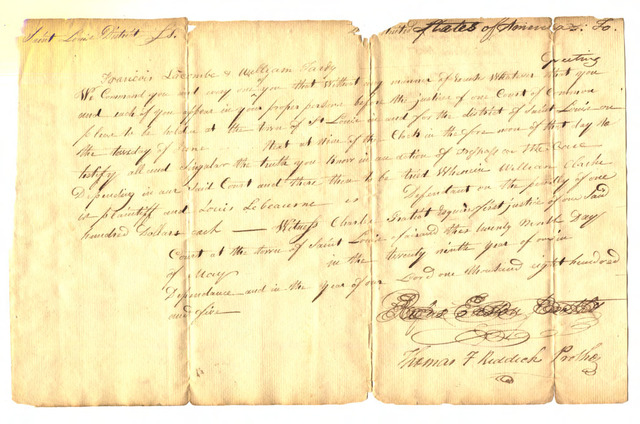 Saint Louis District Ss. United States of America: To
Francois Lacombe & William Hasly Greeting
We Command you and every one of you that Without any manner of Excuse Whatever that you
and each of you appear in your proper persons before the justice of our Court of Common
pleas to be holden at the town of St Louis in and for the district of Saint Louis on
the tuesday of June next at nine of the Clock in the fore noon of that day to
testify all and Singular the truth you know in an action of trespass on the Case
Depending in our Said Court and there then to be tried Wherein William Clarke
is plaintiff and Louis Lebeaume is Defendant on the penalty of one
hundred Dollars each — Witness Charles Gratiot Esquire first justice of our Said
Court at the town of Saint Louis this twenty Day
of May in the twenty ninth year of our in
Dependance and in the year of our Lord one thousand eight hundred
and five
Rufus Easton
Thomas F Riddick Prothy